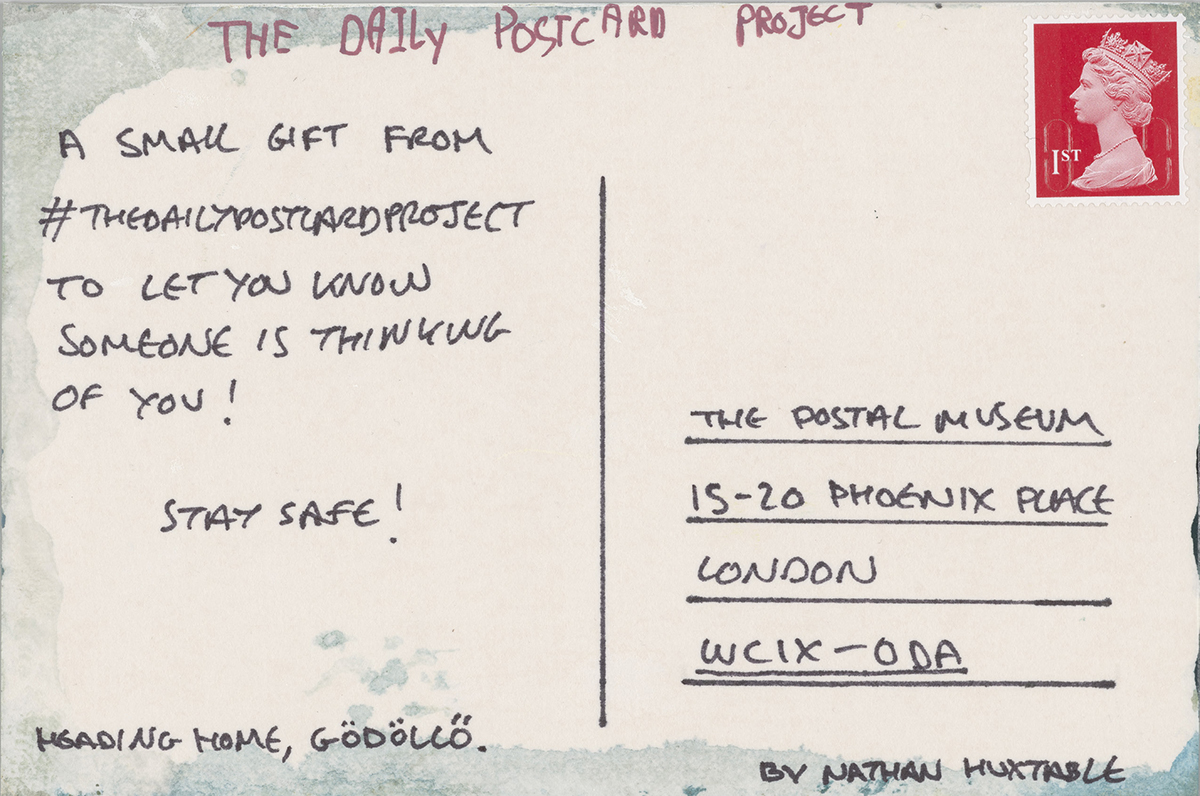 THE DAILY POSTCARD PROJECT
1ST
A SMALL GIFT FROM
#THEDAILYPOSTCARDPROJECT
TO LET YOU KNOW
SOMEONE IS THINKING
OF YOU!
STAY SAFE!
HEADING HOME, GÖDÖLLŐ.
THE POSTAL MUSEUM
15-20 PHOENIX PLACE
LONDON
WC1X-0DA
BY NATHAN HUXTABLE